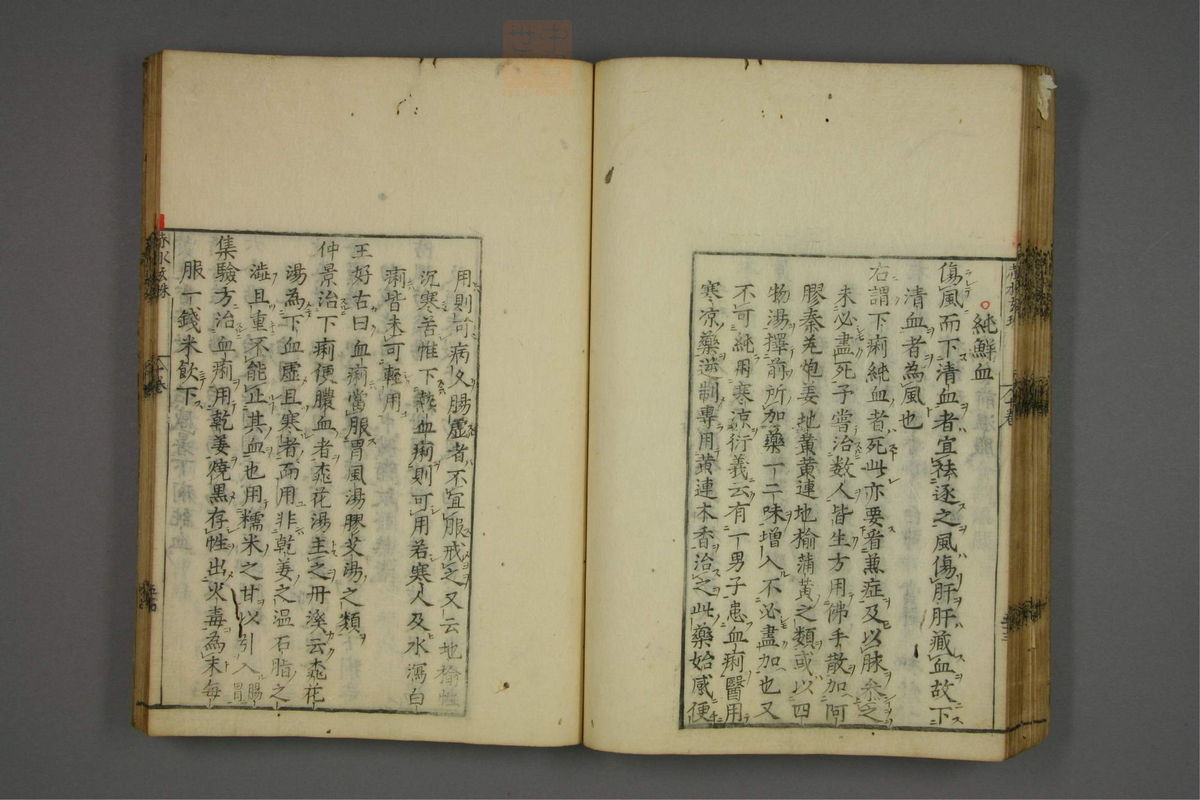 純鮮血
傷風而下清血者宜祛逐之風傷肝肝藏血故下
清血者為風也
右謂下痢純血者死此亦要看兼症及以脉参之
未必盡死予嘗治数人皆生方用佛手散加阿
膠秦艽炮姜地黄黄連地榆蒲黄之類或以四
物湯擇前所加藥一二味増入不必盡加也又
不可純用寒涼衍義云有一男子患血痢醫用
寒涼藥澁制専用黄連木香治之此藥始感便
用則可病久腸虚者不宜服戒之又云地榆性
沉寒苦惟下熱血痢則可用若寒人及水瀉白
痢皆未可輕用
王好古曰血痢當服胃風湯膠艾湯之類
仲景治下痢便膿血者桃花湯主之丹溪云桃花
湯為下血虚且寒者而用非乾姜之温石脂之
澁且重不能止其血也用糯米之甘以引入腸胃
集驗方治血痢用乾姜燒黒存性出火毒為末毎
服一錢米飲下
赤水玄珠